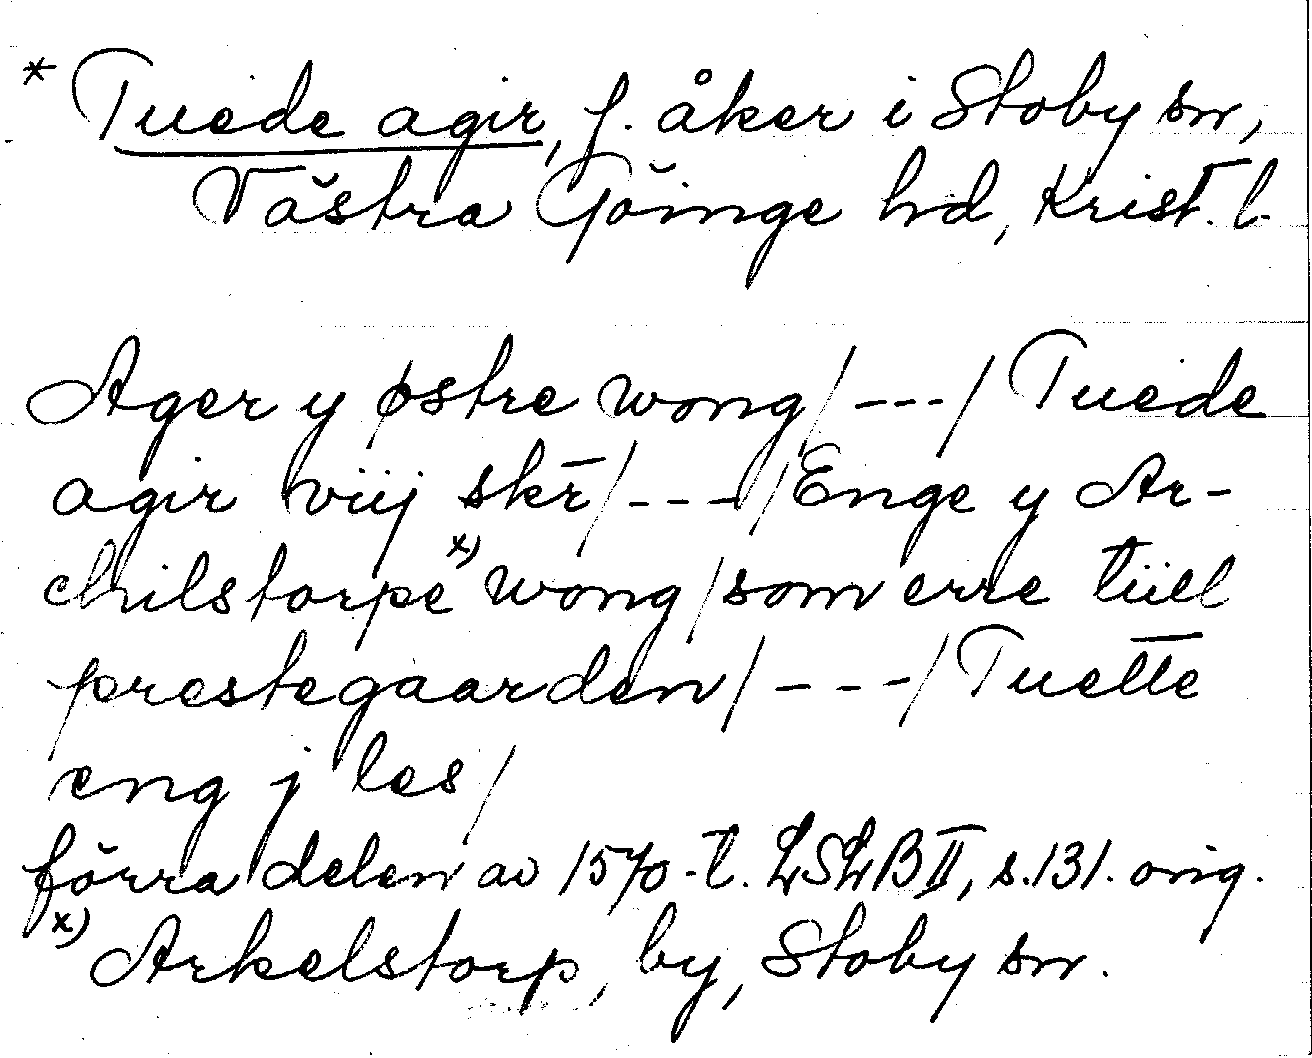 * Tuede agir, f. åker i Stoby sn,
Västra Göinge hd, Krist. l.
Ager y østre wong/---/Tuede
agir viij skr̄/---/Enge y Ar-
chilstorpe x) wong/som erre tiill
prestegaarden/---/Tuette
eng j les/
förra delen av 1570-t. LSLB II, s. 131. orig.
x) Arkelstorp, by, Stoby sn.